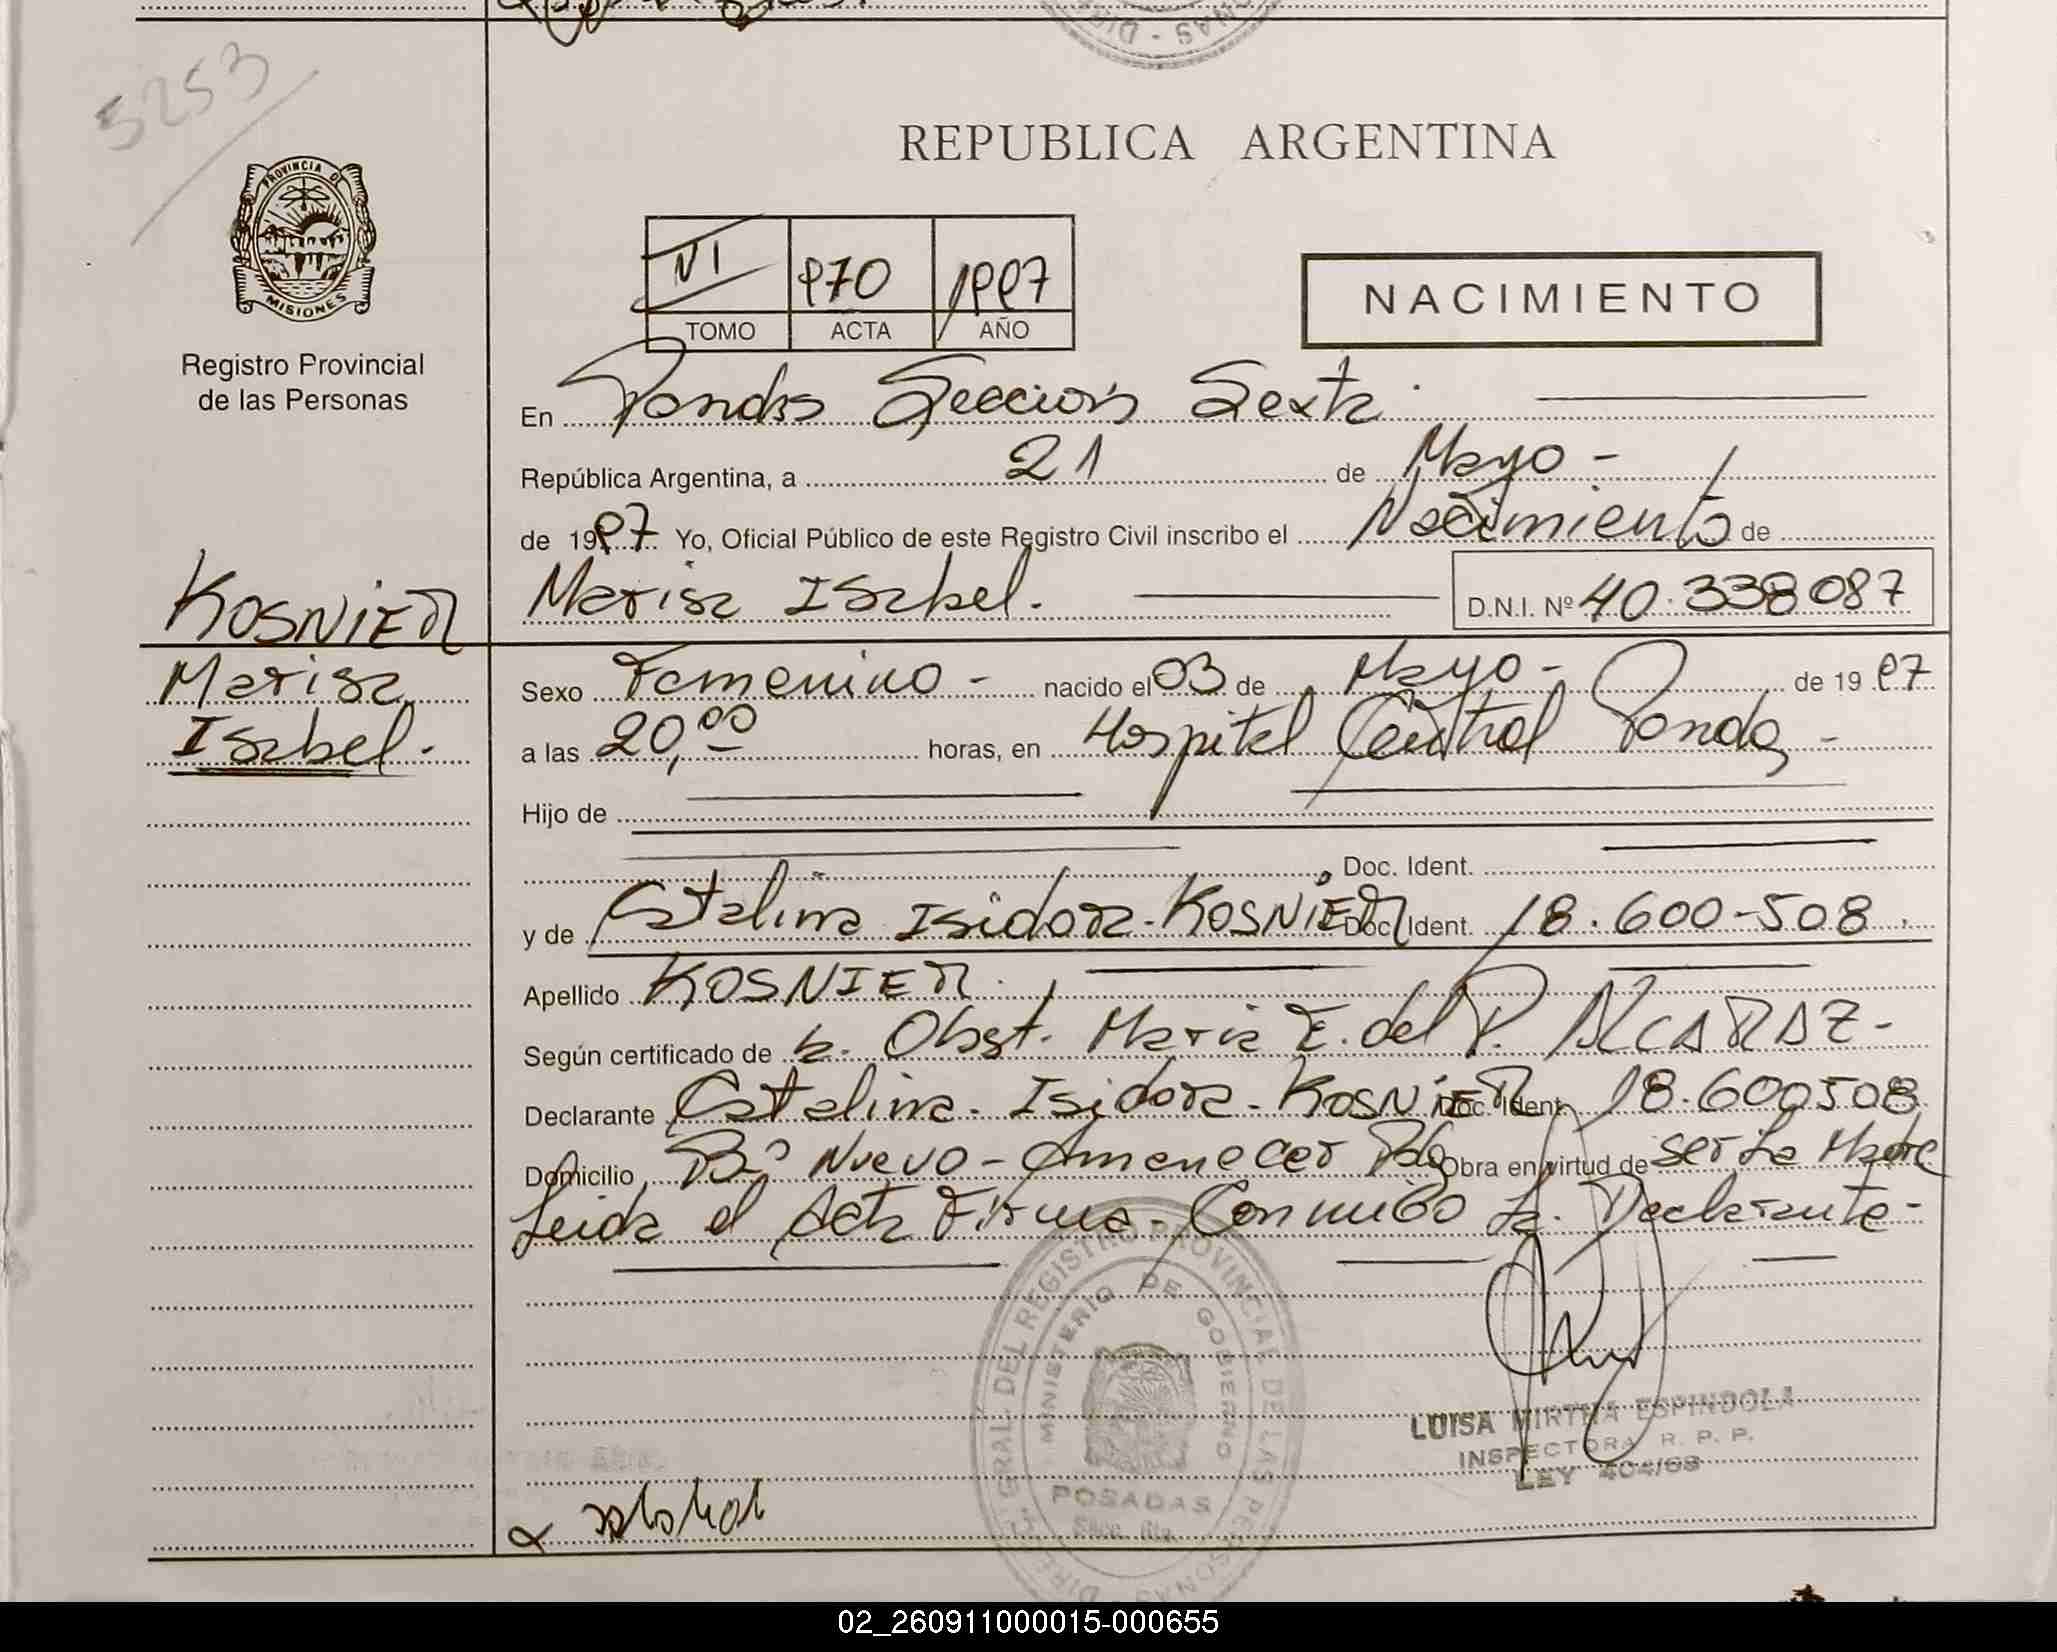 5253
REPUBLICA ARGENTINA
PROVINCIA DE
MISIONES
Registro Provincial
de las Personas
VI 970 1997
TOMO ACTA AÑO
NACIMIENTO
En Posadas Sección Sexta.
República Argentina, a 21 de Mayo -
de 1997 Yo, Oficial Público de este Registro Civil inscribo el Nacimiento de
Marisa Isabel. D.N.I. Nº 40.338087
KOSNIER
Marisa
Isabel.
Sexo Femenino - nacido el 03 de Mayo - de 1997
a las 20,00 horas, en Hospital Central Posadas -
Hijo de
Doc. Ident.
y de Catalina Isidora KOSNIER Doc. Ident. 18.600-508
Apellido KOSNIER.
Según certificado de la Obst. Maria E. del P. ALCARAZ -
Declarante Catalina Isidora KOSNIER Doc. Ident. 18.600508
Domicilio Bº Nuevo - Amanecer Pdas Obra en virtud de ser La Madre
Leida el Acta Firma Conmigo La Declarante -
DIREC. GRAL. DEL REGISTRO PROVINCIAL DE LAS PERSONAS
MINISTERIO DE GOBIERNO
POSADAS
LUISA MIRTHA ESPINDOLA
INSPECTORA R. P. P.
LEY 404/68
02_260911000015-000655